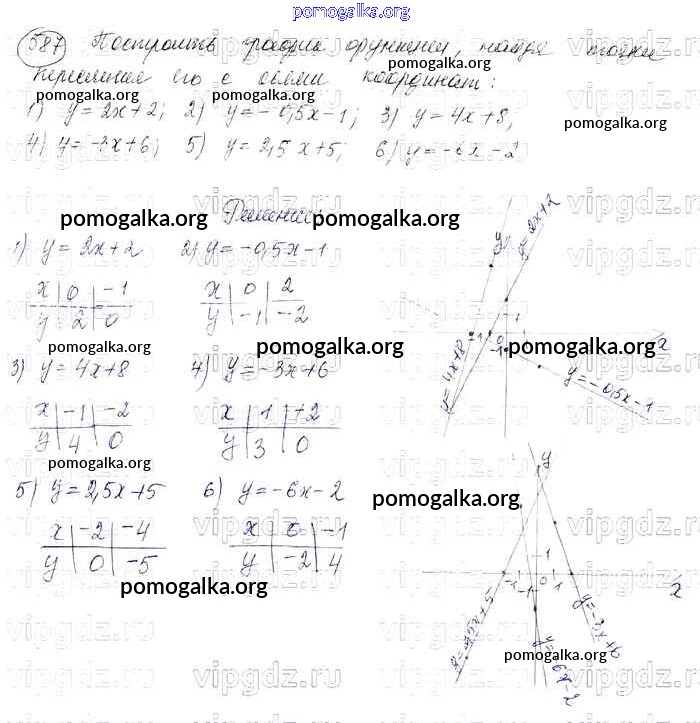 pomogalka.org
587 Построить график функции, найдя точки
пересечения его с осями координат:
pomogalka.org pomogalka.org pomogalka.org
1) y = 2x+2; 2) y = -0,5x-1; 3) y = 4x+8;
pomogalka.org
4) y = -3x+6; 5) y = 2,5x+5; 6) y = -6x-2
vipgdz.ru vipgdz.ru vipgdz.ru vipgdz.ru
Решение
pomogalka.org pomogalka.org
1) y = 2x+2 2) y = -0,5x-1
x 0 -1
y 2 0
x 0 2
y -1 -2
pomogalka.org pomogalka.org pomogalka.org
3) y = 4x+8 4) y = -3x+6
x -1 -2
y 4 0
x 1 +2
y 3 0
pomogalka.org
5) y = 2,5x+5 6) y = -6x-2
pomogalka.org
x -2 -4
y 0 -5
x 0 -1
y -2 4
pomogalka.org
y
y = 2x+2
-1 0 1
-1
x
y = 4x+8
y = -0,5x-1
y
1
-1 0 1
-1
x
y = 2,5x+5
y = -3x+6
pomogalka.org
y = -6x-2